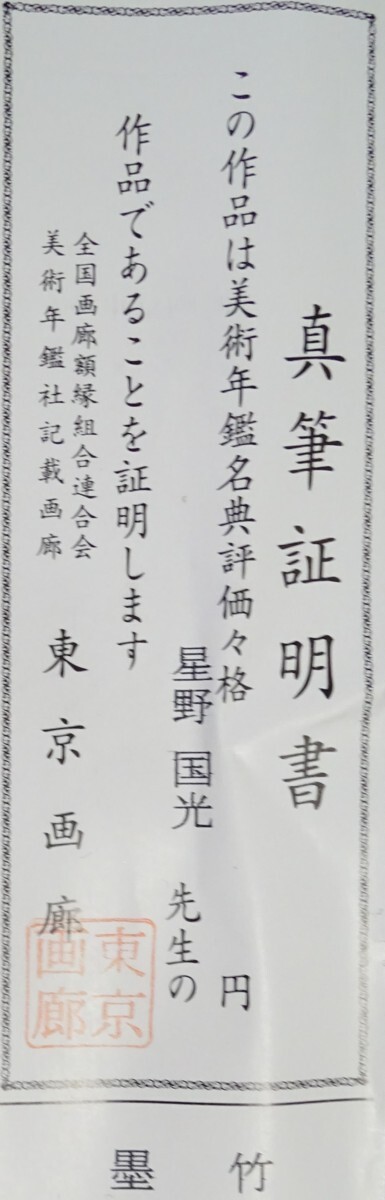 真筆証明書
この作品は美術年鑑名典評価々格 円
星野 国光 先生の
作品であることを証明します
全国画廊額縁組合連合会
美術年鑑社記載画廊
東京画廊
東京
画廊
竹
墨